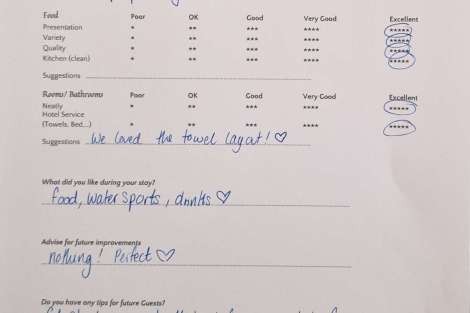 Food Poor OK Good Very Good Excellent
Presentation * ** *** **** *****
Variety * ** *** **** *****
Quality * ** *** **** *****
Kitchen (clean) * ** *** **** *****
Suggestions
Rooms/ Bathrooms Poor OK Good Very Good Excellent
Neatly * ** *** **** *****
Hotel Service
(Towels, Bed...) * ** *** **** *****
Suggestions We loved the towel layout! ♡
What did you like during your stay?
food, water sports, drinks ♡
Advise for future improvements
nothing! Perfect ♡
Do you have any tips for future Guests?